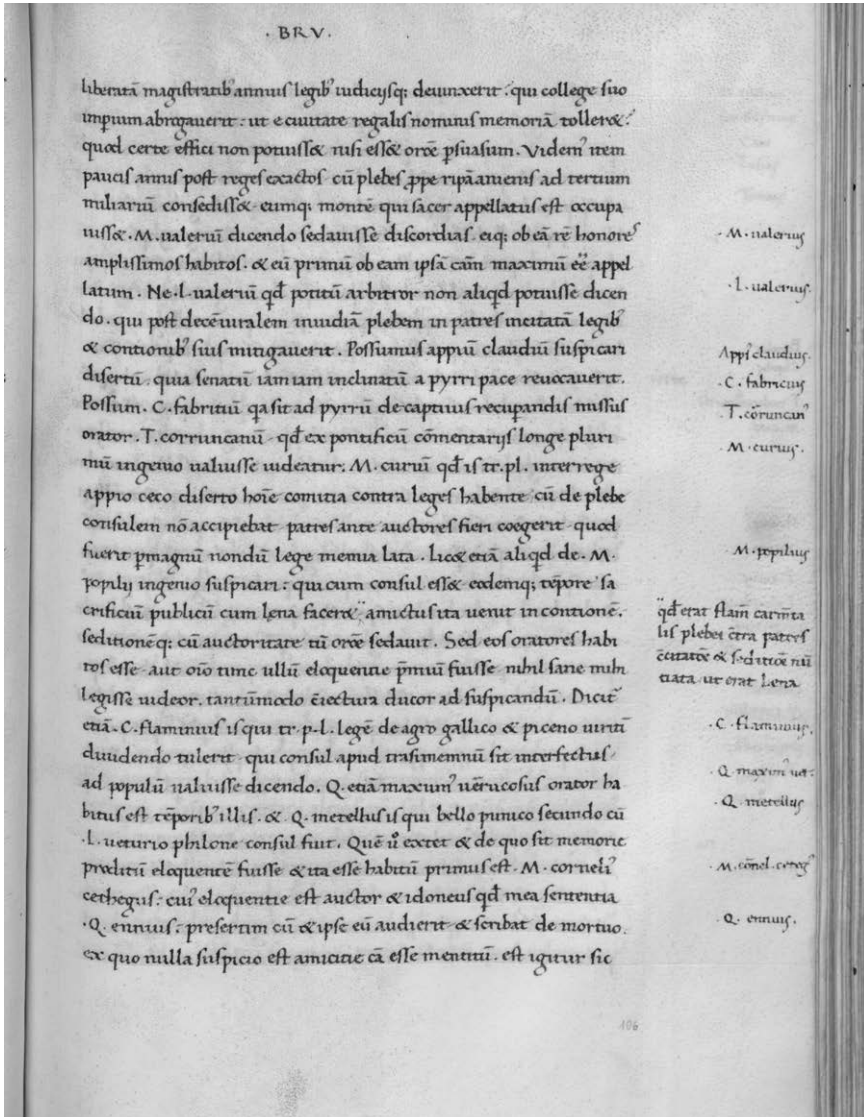 · BRV ·
liberatā magistratib᾽ annuis legib᾽ iudicijsq; deuinxerit: qui college suo
impium abrogauerit: ut e ciuitate regalis nominis memoriā toller&:
quod certe effici non potuiss& nisi ess& orōe psuasum. Videm᾽ item
paucis annis post reges exactos cū plebes ꝓpe ripā anienis ad tertium
miliariū consediss& eumq; montē qui sacer appellatus est occupa
uiss&. M. ualeriū dicendo sedauisse discordias. eiq; ob eā rē honores
amplissimos habitos. & eū primū ob eam ipsā cām maximū eē appel
latum. Ne. L. ualeriū qd̄ potitū arbitror non aliqd potuisse dicen
do. qui post decēuiralem inuidiā plebem in patres incitatā legib᾽
& contionib᾽ suis mitigauerit. Possumus appiū claudiū suspicari
disertū. quia senatū iam iam inclinatū a pyrri pace reuocauerit.
Possum. C. fabritiū qa sit ad pyrrū de captiuis recupandis missus
orator. T. corruncaniū qd̄ ex pontificū cōmentarijs longe pluri
mū ingenio ualuisse uideatur. M. curiū qd̄ is tr. pl. interrege
appio ceco diserto hoīe comitia contra leges habente cū de plebe
consulem nō accipiebat patres ante auctores fieri coegerit quod
fuerit pmagnū nondū lege memia lata. lic& etiā aliqd de. M.
popilij ingenio suspicari: qui cum consul ess& eodemq; tēpore sa
crificiū publicū cum lena facer& amictus ita uenit in contionē.
seditionēq; cū auctoritate tū orōe sedauit. Sed eos oratores habi
tos esse aut oīo tunc ullū eloquentie p̄miū fuisse nihil sane mihi
legisse uideor. tantūmodo c̄iectura ducor ad suspicandū. Dicit᾽
etiā. C. flaminius is qui tr. p. l. legē de agro gallico & piceno uiritī
diuidendo tulerit qui consul apud trasimemnū sit interfectus
ad populū ualuisse dicendo. Q. etiā maximus uerrucosus orator ha
bitus est tēporib᾽ illis. &. Q. metellus is qui bello punico secundo cū
· L. ueturio philone consul fuit. Quē ū extet & de quo sit memorie
proditū eloquentē fuisse & ita esse habitū primus est. M. corneli᾽
cethegus: cui᾽ eloquentie est auctor & idoneus qd̄ mea sententia
· Q. ennius: presertim cū & ipse eū audierit & scribat de mortuo.
ex quo nulla suspicio est amicitie cā esse mentitū. est igitur sic
· M. ualerius
· L. ualerius.
Appi᾽ claudius.
· C. fabricius
· T. corruncan᾽
· M. curius.
· M. popilius
qd̄ erat flam̄ carmēta
lis plebei c̄tra patres
c̄citatōe & seditiōe nū
tiata ut erat Lena
· C. flaminius.
· Q. maxim᾽ uer.
· Q. metellus
· M. cōnel. ceteg᾽
· Q. ennius.
106